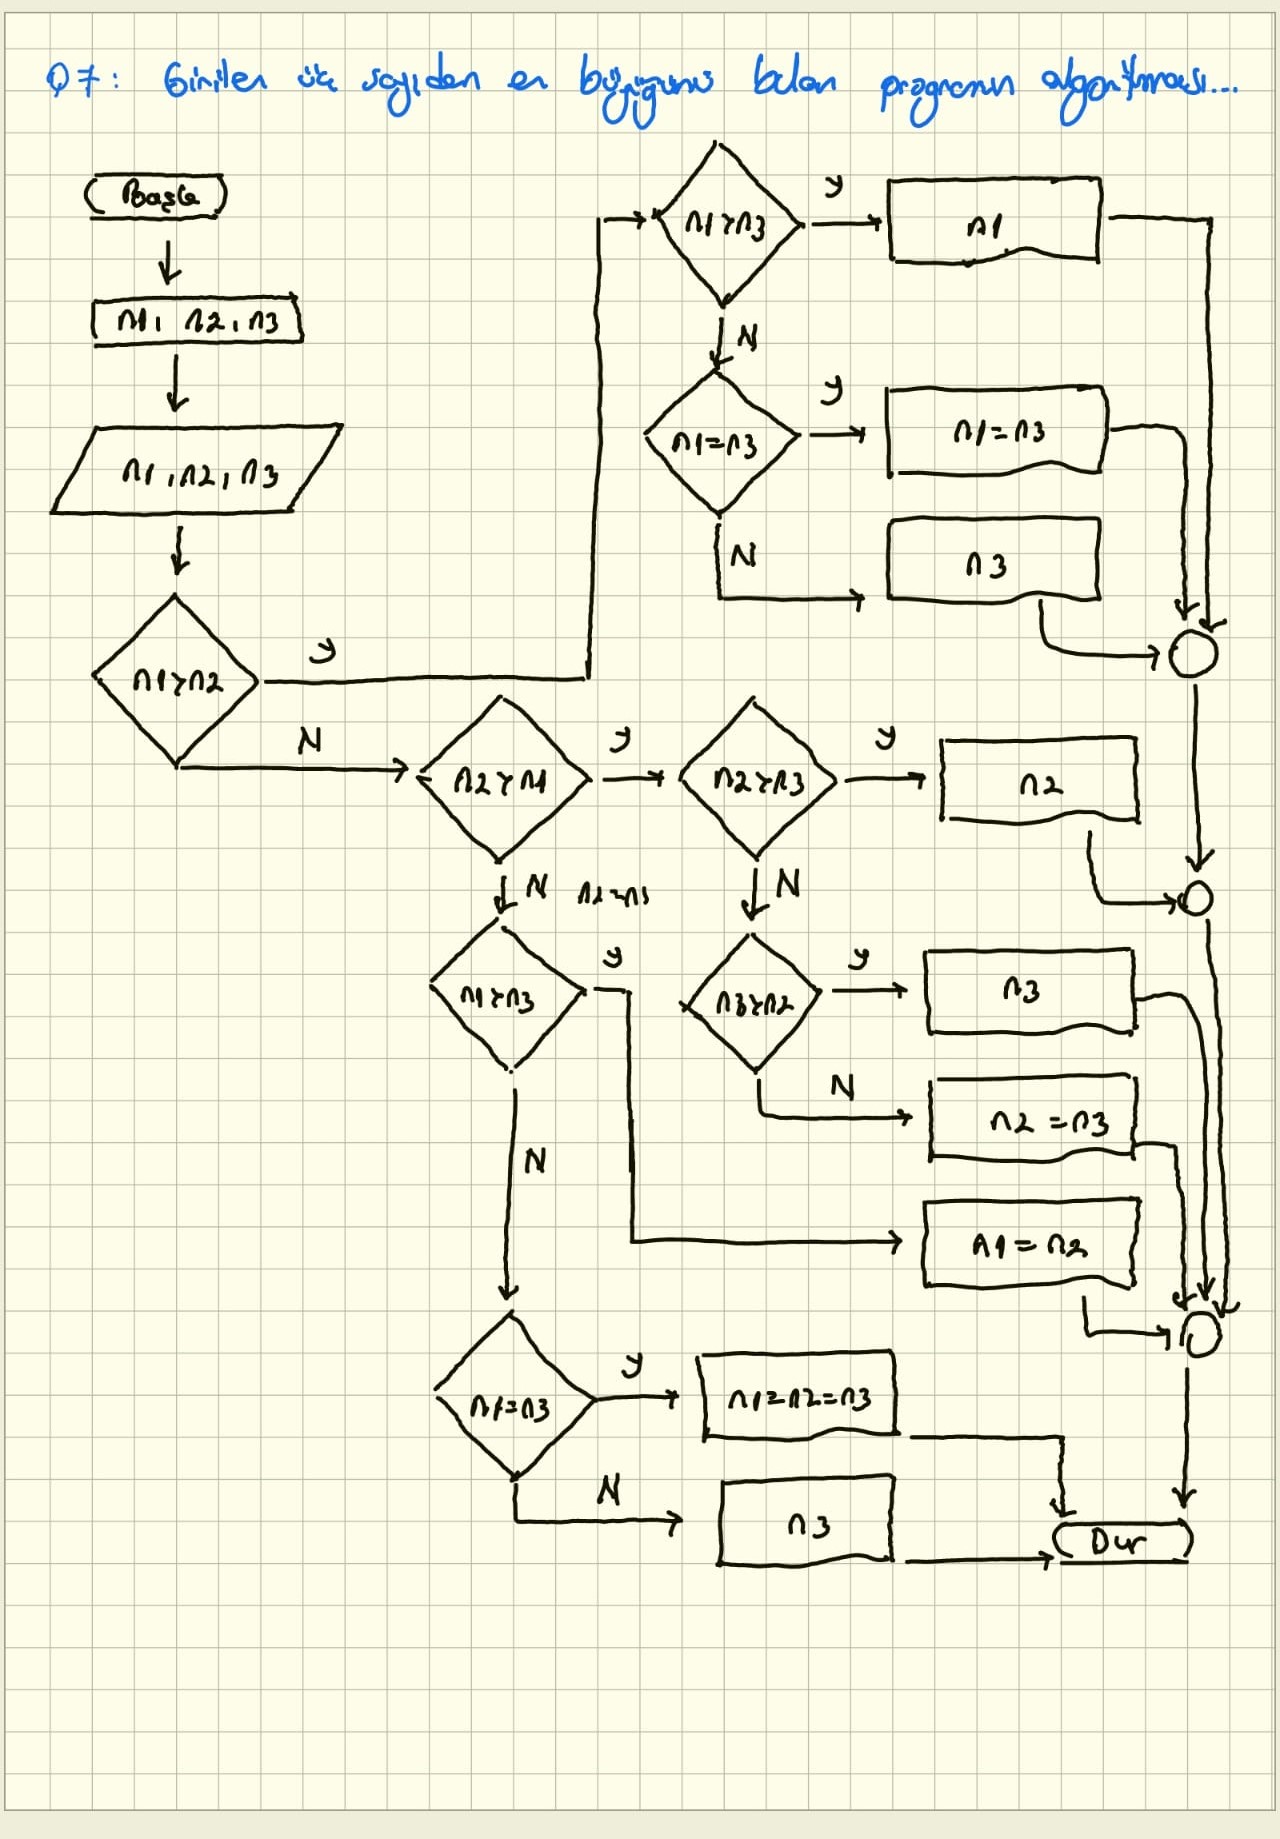 Q7: Girilen üç sayıdan en büyüğünü bulan programın algoritması...
Başla
n1, n2, n3
n1, n2, n3
n1>n2
Y
N
n1>n3
Y
n1
N
n1=n3
Y
n1=n3
N
n3
n2>n1
Y
n2>n3
Y
n2
N
N
n1>n3
Y
n3>n2
Y
n3
N
n2=n3
n1=n2
N
n1=n3
Y
n1=n2=n3
N
n3
Dur